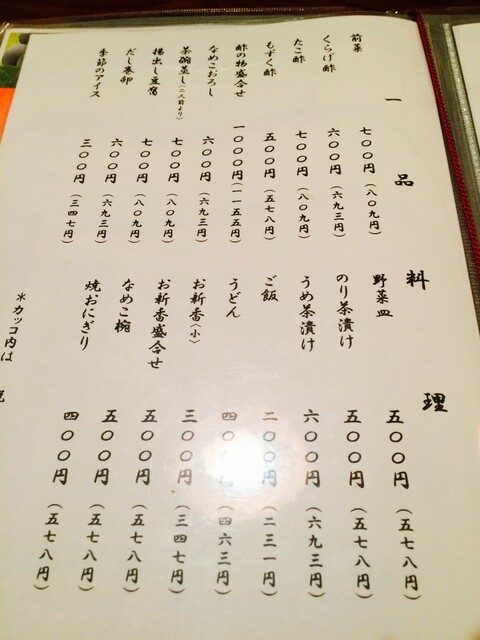 一品料理
前菜 七〇〇円(八〇九円)
くらげ酢 六〇〇円(六九三円)
たこ酢 七〇〇円(八〇九円)
もずく酢 五〇〇円(五七八円)
酢の物盛合せ 一〇〇〇円(一一五五円)
なめこおろし 六〇〇円(六九三円)
茶碗蒸し(二人前より) 七〇〇円(八〇九円)
揚出し豆腐 七〇〇円(八〇九円)
だし巻卵 六〇〇円(六九三円)
季節のアイス 三〇〇円(三四七円)
野菜皿 五〇〇円(五七八円)
のり茶漬け 五〇〇円(五七八円)
うめ茶漬け 六〇〇円(六九三円)
ご飯 二〇〇円(二三一円)
うどん 四〇〇円(四六三円)
お新香(小) 三〇〇円(三四七円)
お新香盛合せ 五〇〇円(五七八円)
なめこ椀 五〇〇円(五七八円)
焼おにぎり 四〇〇円(五七八円)
*カッコ内は